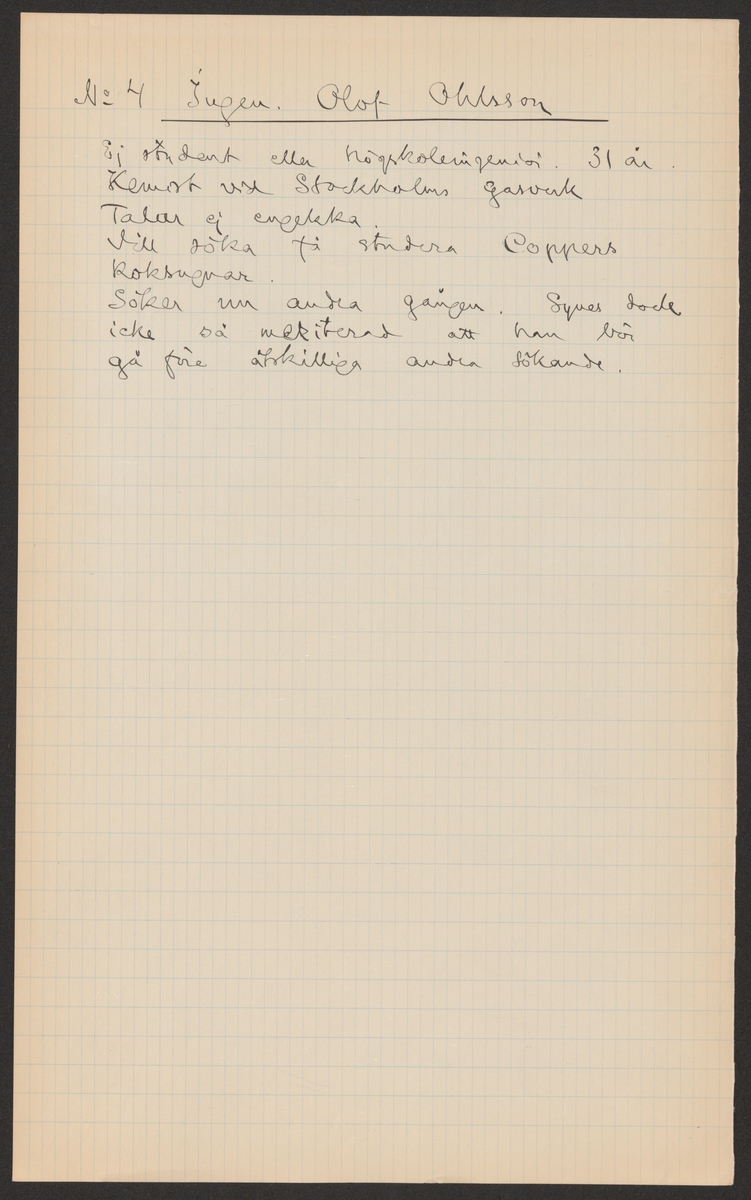 No 4 Ingen. Olof Ohlsson
Ej student eller högskoleingeniör. 31 år.
Kemist vid Stockholms gasverk
Talar ej engelska.
Vill söka få studera Coppers
koksugnar.
Söker nu andra gången. Synes dock
icke så meriterad att han bör
gå före åtskilliga andra sökande.